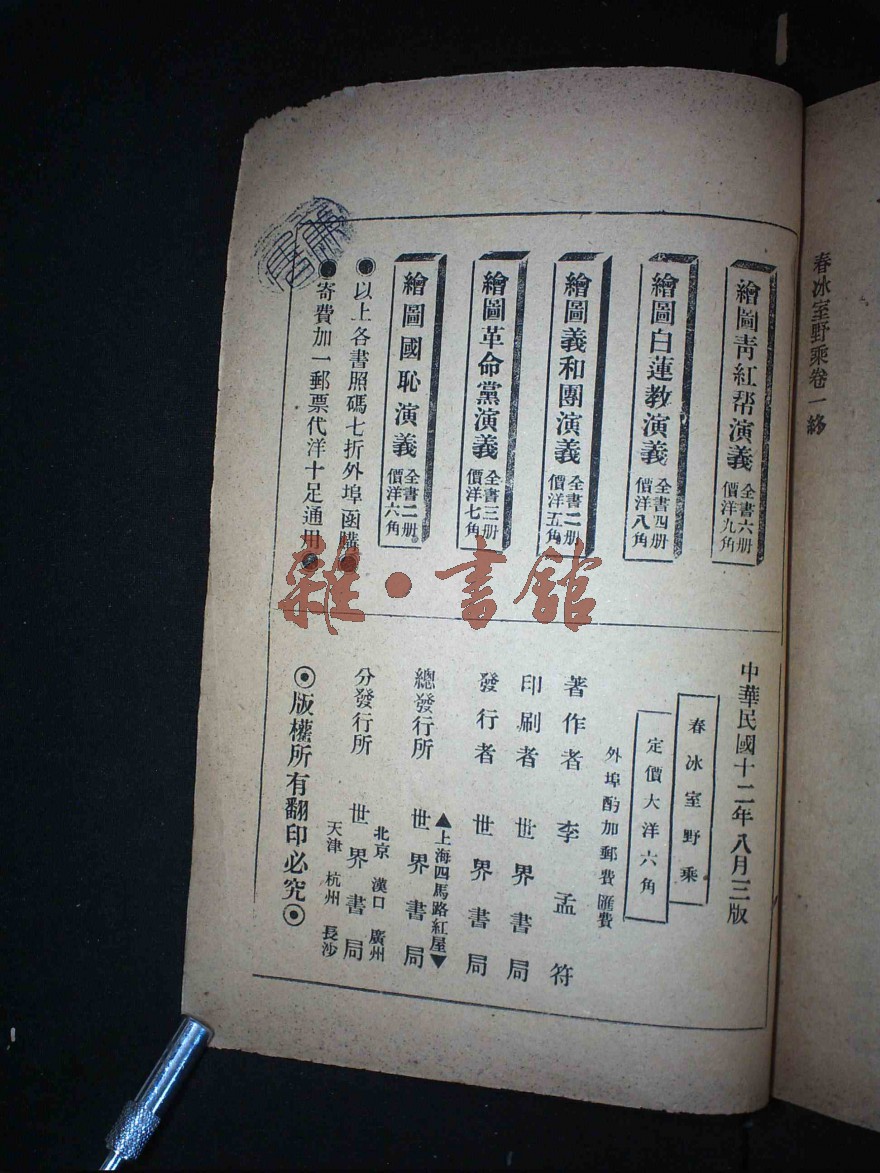 春冰室野乘卷一終
繪圖青紅帮演義 全書六册 價洋九角
繪圖白蓮教演義 全書四册 價洋八角
繪圖義和團演義 全書二册 價洋五角
繪圖革命黨演義 全書三册 價洋七角
繪圖國恥演義 全書二册 價洋六角
●以上各書照碼七折外埠函購●
●寄費加一郵票代洋十足通用●
雜·書館
中華民國十二年八月三版
春冰室野乘
定價大洋六角
外埠酌加郵費匯費
著作者 李孟符
印刷者 世界書局
發行者 世界書局
▲上海四馬路紅屋▼
總發行所 世界書局
北京 漢口 廣州
分發行所 世界書局
天津 杭州 長沙
◉版權所有翻印必究◉